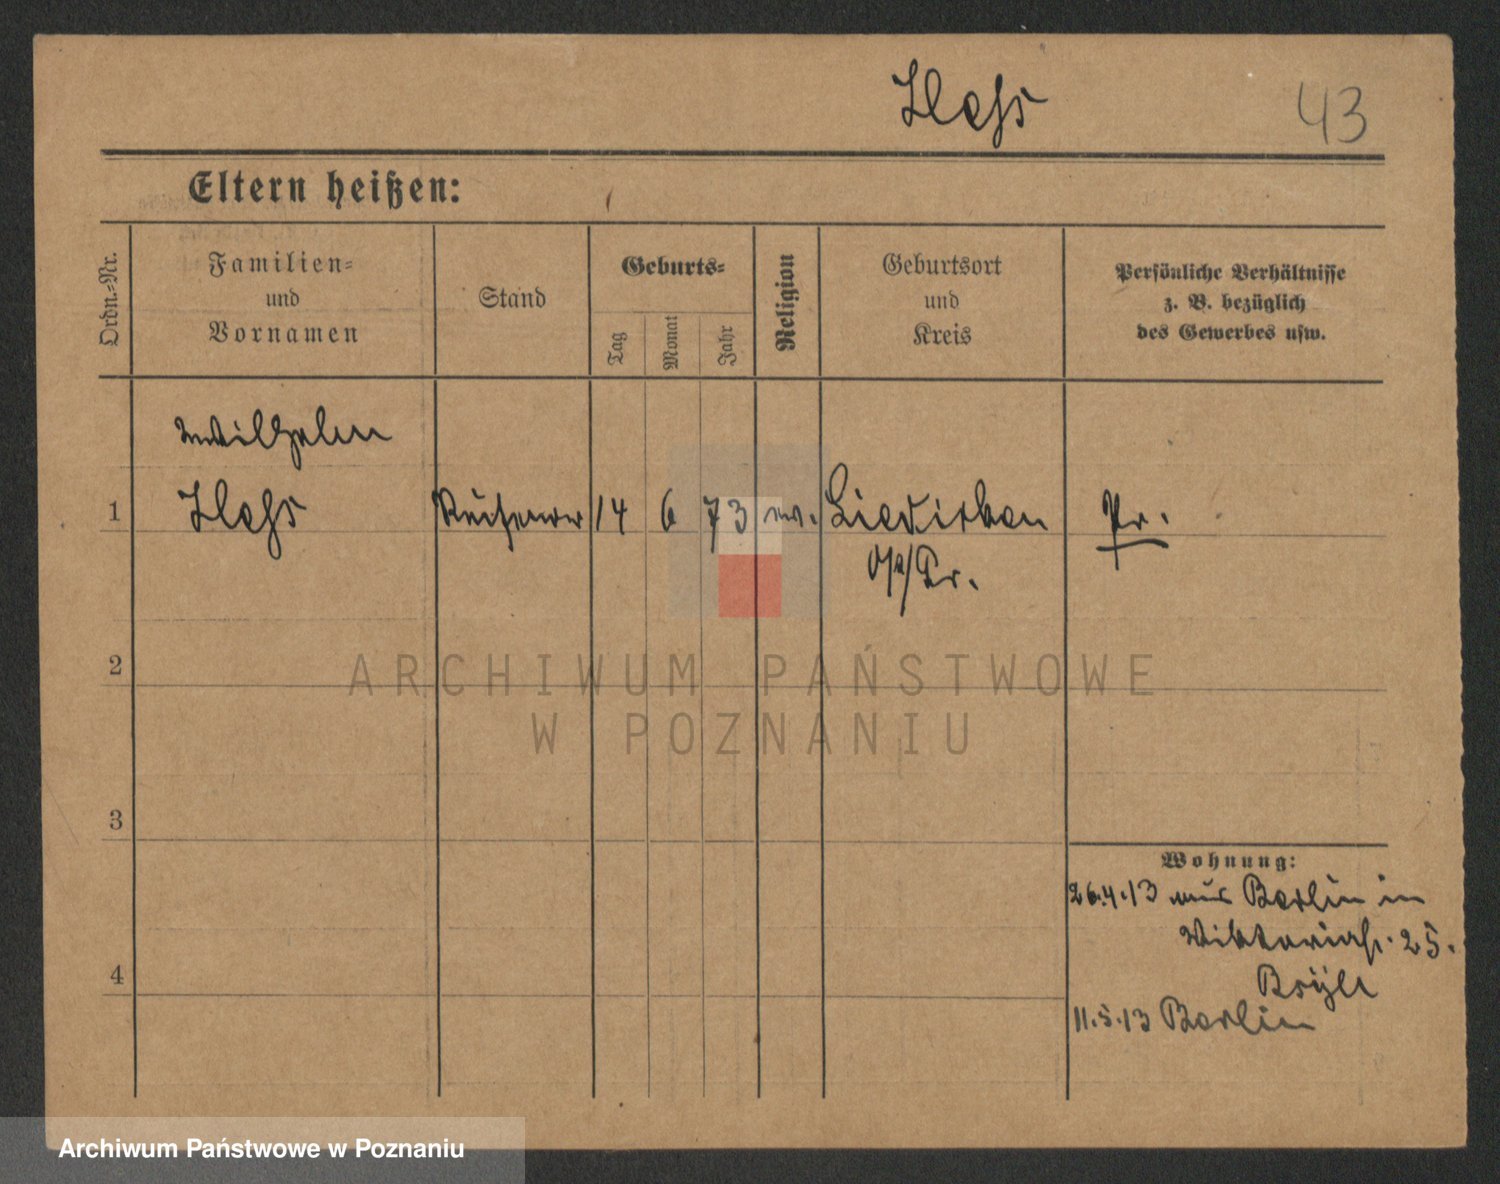 43
Eltern heißen:
Ordn.-Nr.
Familien-
und
Vornamen
Stand
Geburts-
Tag
Monat
Jahr
Religion
Geburtsort
und
Kreis
Persönliche Verhältnisse
z. B. bezüglich
des Gewerbes usw.
Wilhelm
1
14 6 73 ev.
O/Pr.
Pr.
2
ARCHIWUM PAŃSTWOWE
W POZNANIU
3
Wohnung:
26.4.13 aus Berlin in
Viktoriastr. 25.
4
11.5.13 Berlin
Archiwum Państwowe w Poznaniu